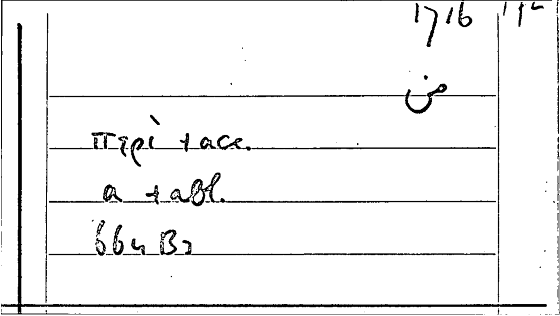 1716
من
περὶ +acc.
a +abl.
66u B2